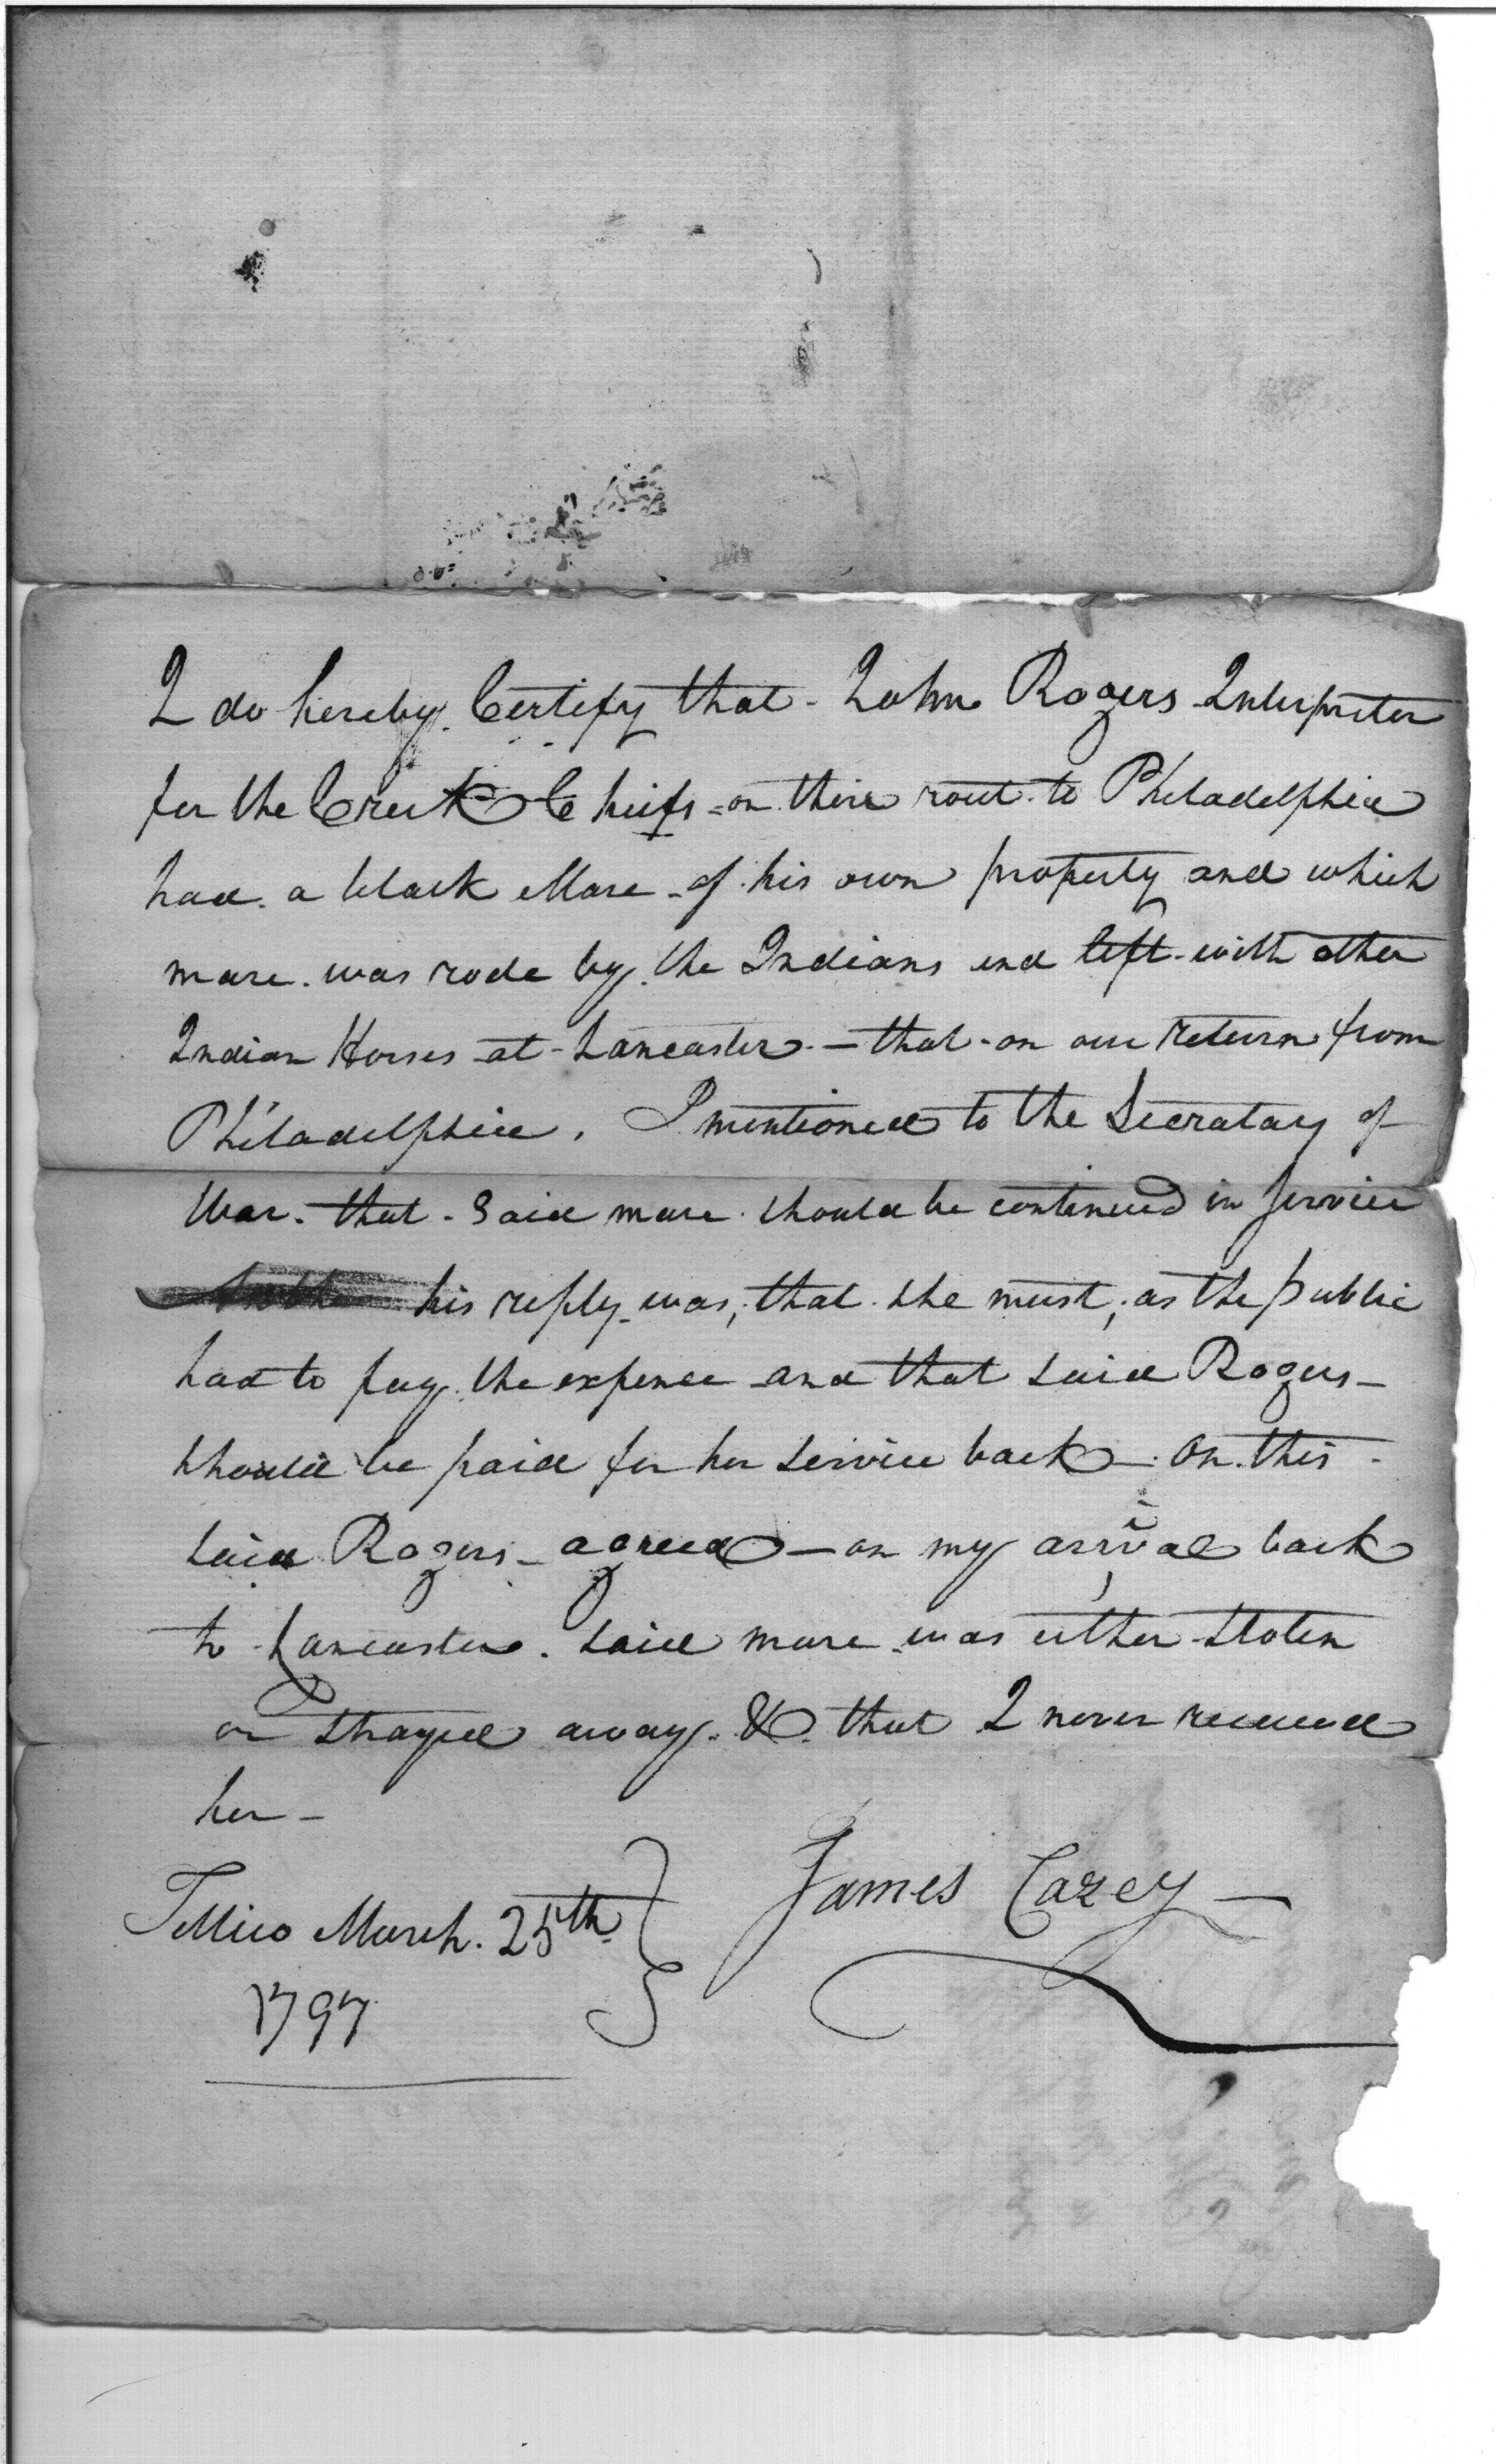 I do hereby Certify that - John Rogers Interpreter
for the Creek Cheifs - on thire rout to Philadelphia
had a black Mare - of his own property and which
mare was rode by the Indians and left with other
Indian Horses at Lancaster - that - on our return from
Philadelphia, I mentioned to the Secratary of
War - that - Said mare should be continued in Service
his reply was, that she must, as the public
had to pay the expence and that said Rogers -
should be paid for her service back - On this -
said Rogers - agreed - on my arrival back
to Lancaster. said mare was either stolen
or strayed away. & that I never received
her -
Tellico March. 25th
1797
James Carey -